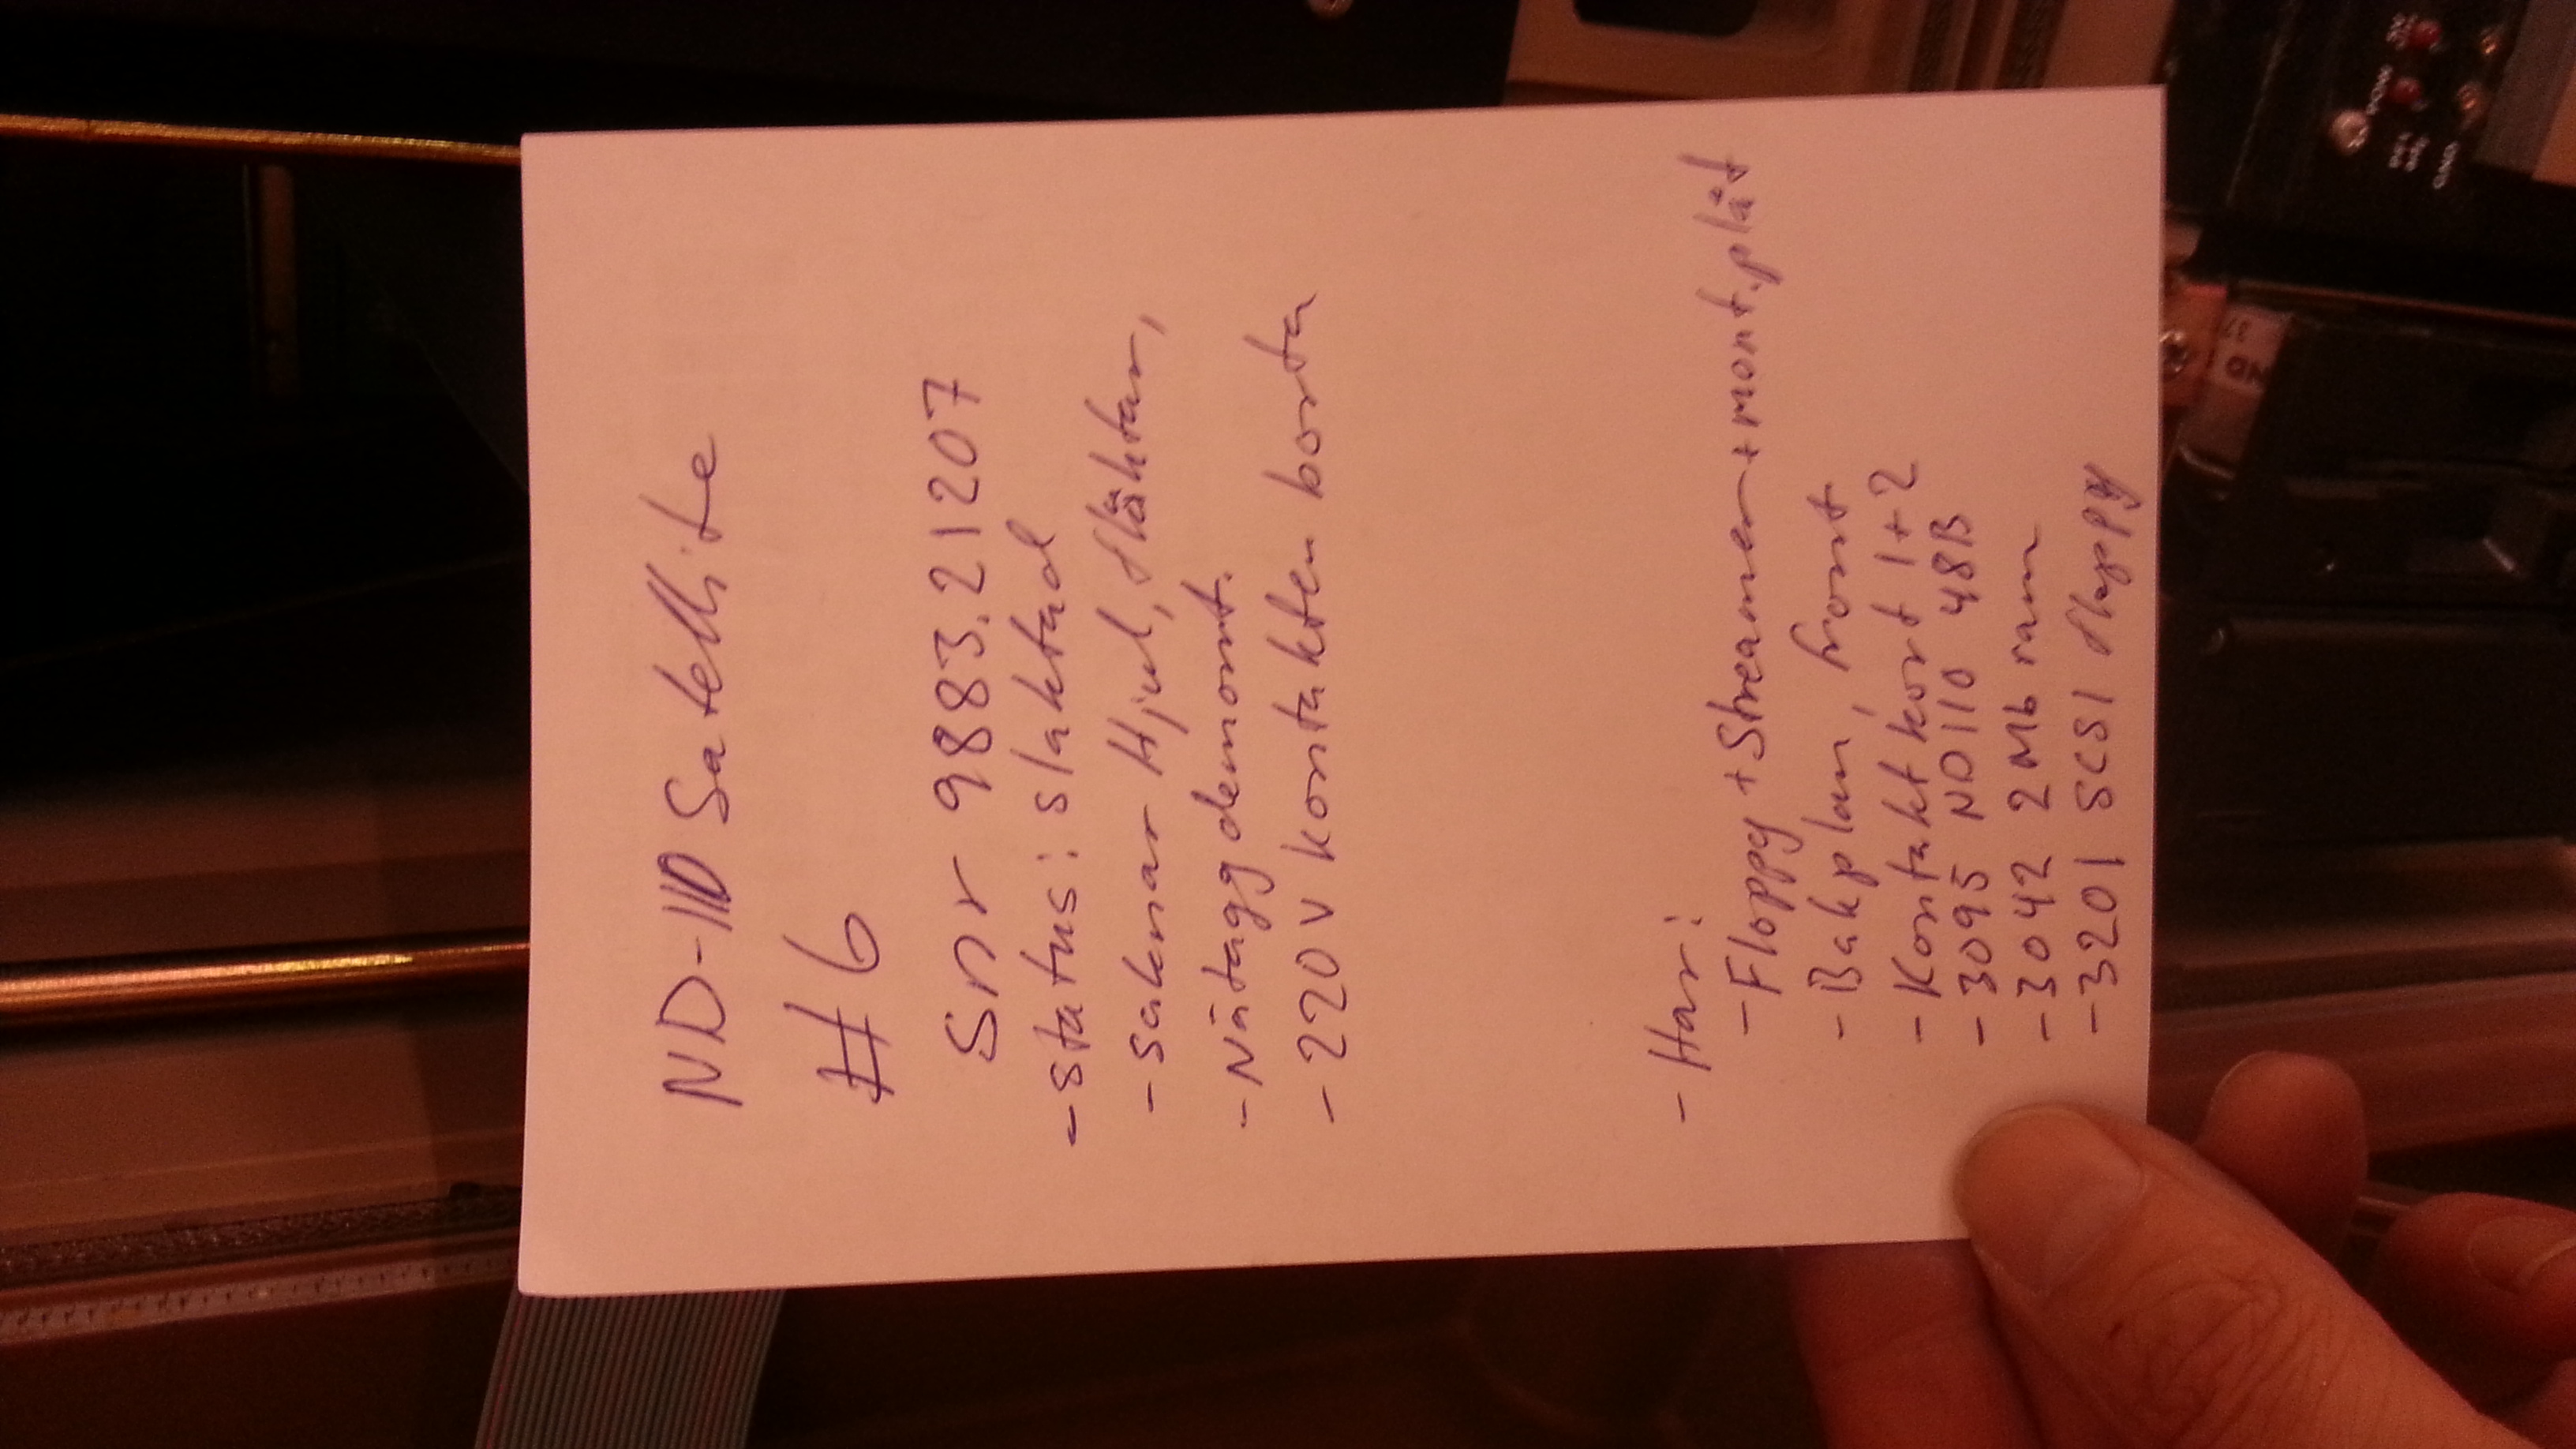 ND-110 Satellite
#6
Snr 9883.21207
- status: slaktad
- saknar Hjul, fläktar,
- Nätagg demont.
- 220 V kontakten borta
- Har:
- Floppy + Streamer + mont.plåt
- Bakplan, front
- Kontaktkort 1+2
- 3095 ND110 48B
- 3042 2Mb ram
- 3201 SCSI floppy
ND